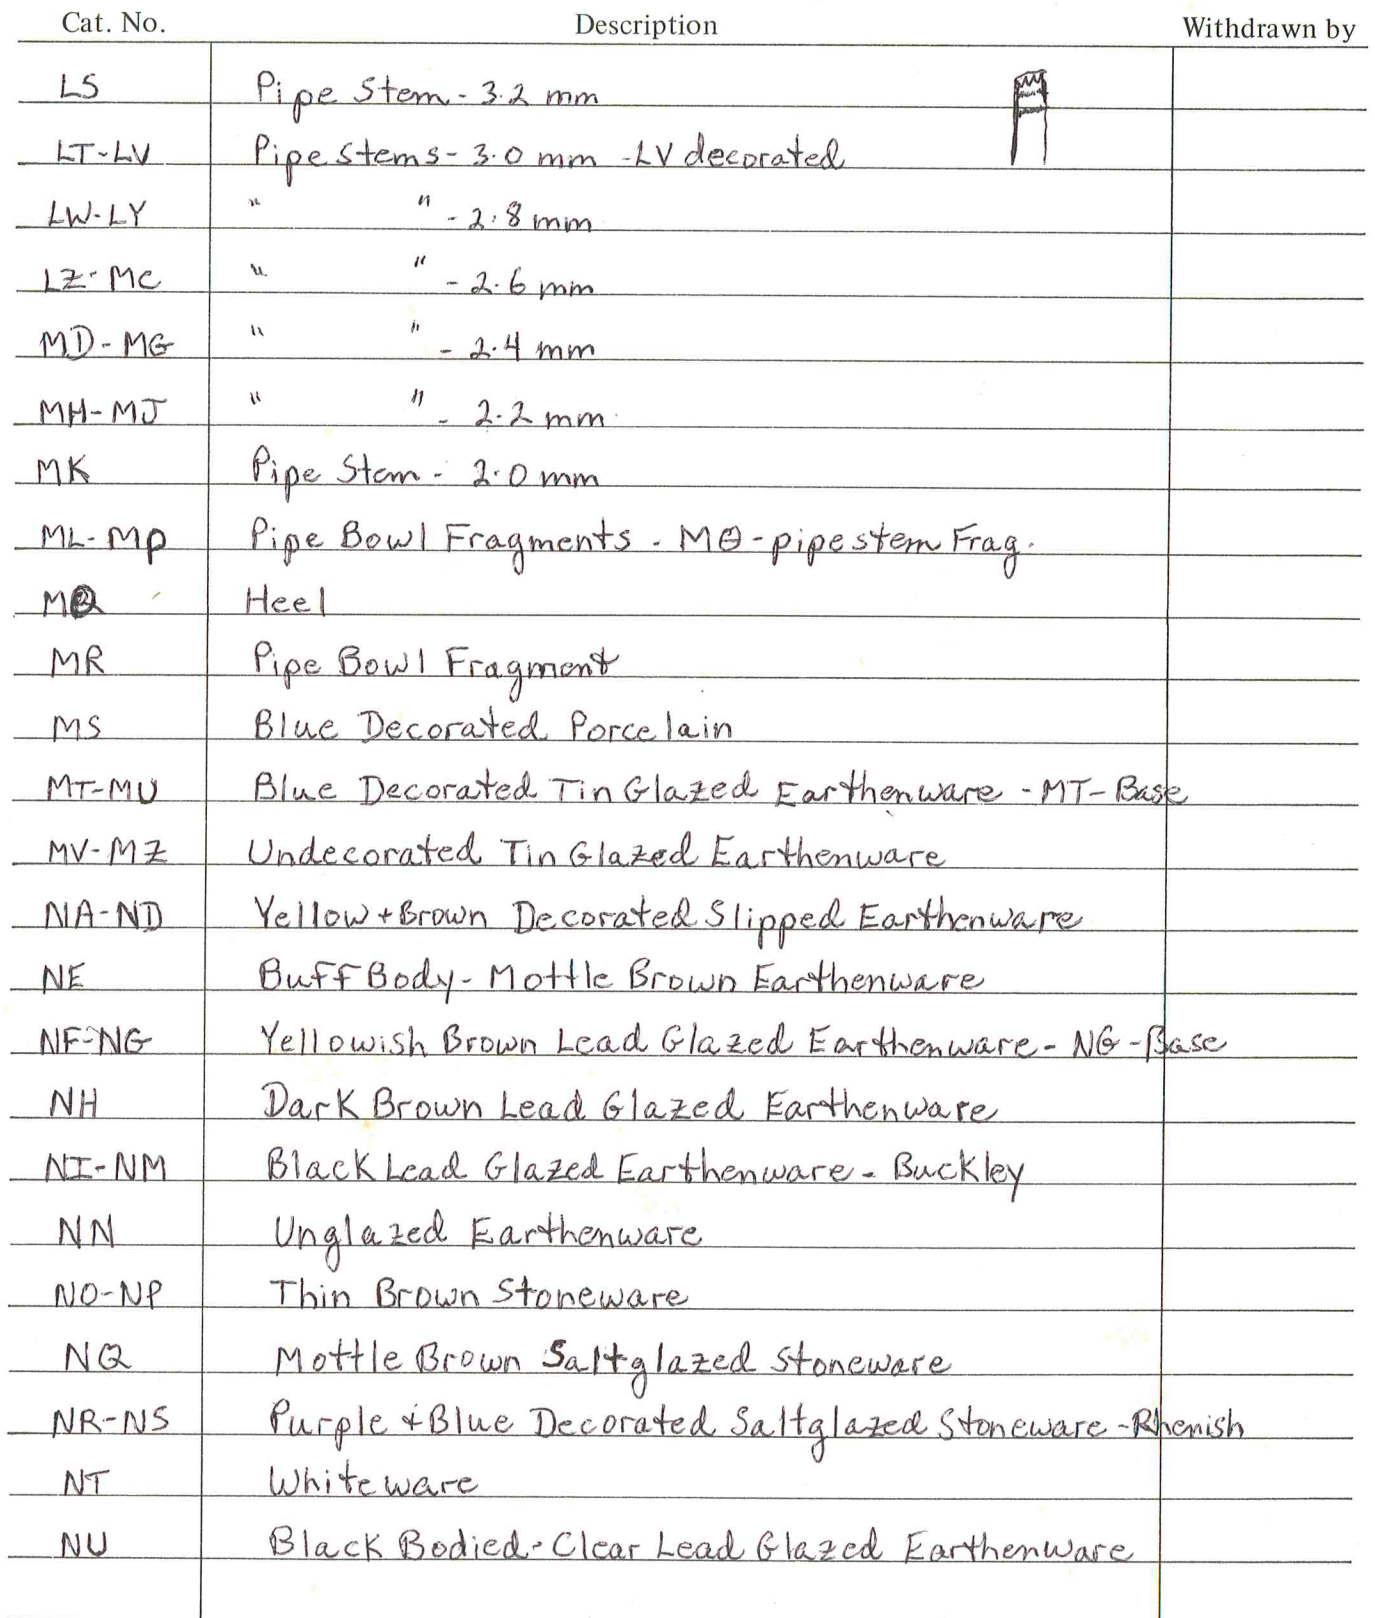 Cat. No. Description Withdrawn by
LS Pipe Stem - 3.2 mm
LT-LV Pipe stems - 3.0 mm - LV decorated
LW-LY " " - 2.8 mm
LZ-MC " " - 2.6 mm
MD-MG " " - 2.4 mm
MH-MJ " " - 2.2 mm
MK Pipe Stem - 2.0 mm
ML-MP Pipe Bowl Fragments - MO - pipe stem Frag.
MQ Heel
MR Pipe Bowl Fragment
MS Blue Decorated Porcelain
MT-MU Blue Decorated Tin Glazed Earthenware - MT - Base
MV-MZ Undecorated Tin Glazed Earthenware
NA-ND Yellow + Brown Decorated Slipped Earthenware
NE Buff Body - Mottle Brown Earthenware
NF-NG Yellowish Brown Lead Glazed Earthenware - NG - Base
NH Dark Brown Lead Glazed Earthenware
NI-NM Black Lead Glazed Earthenware - Buckley
NN Unglazed Earthenware
NO-NP Thin Brown Stoneware
NQ Mottle Brown Saltglazed Stoneware
NR-NS Purple + Blue Decorated Saltglazed Stoneware - Rhenish
NT Whiteware
NU Black Bodied - Clear Lead Glazed Earthenware